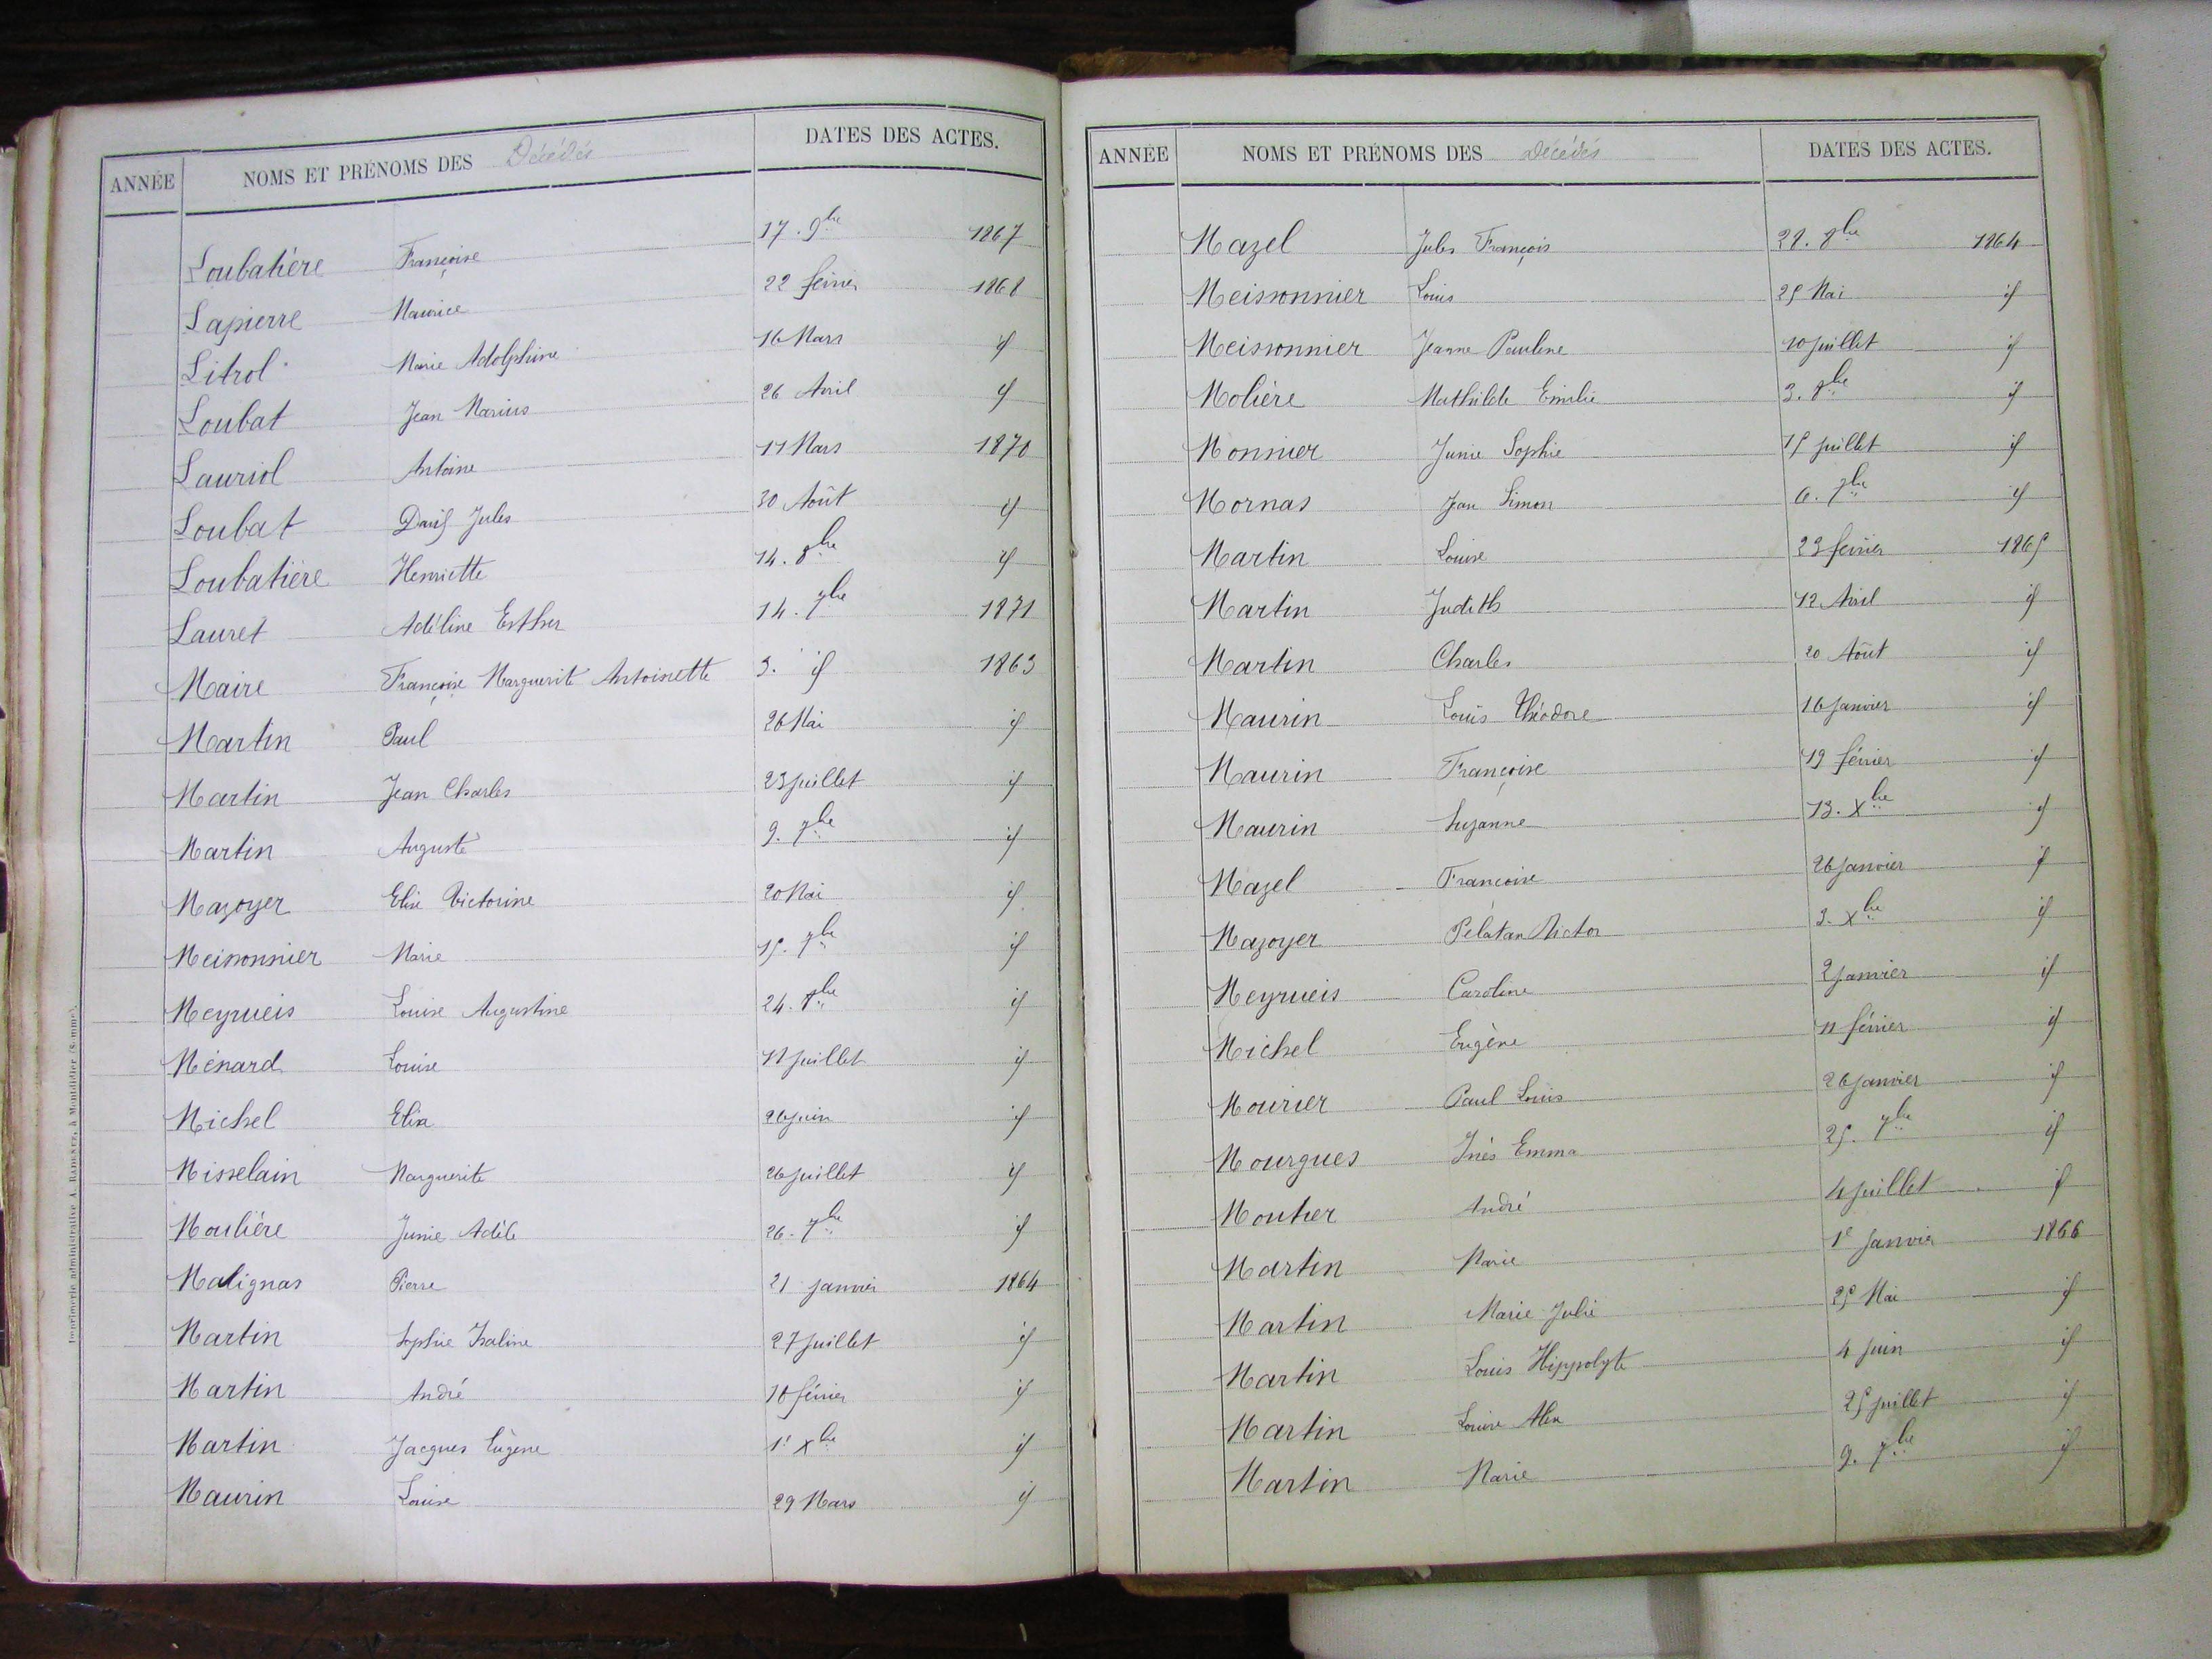 ANNÉE NOMS ET PRÉNOMS DES Décédés DATES DES ACTES.
Loubatière Françoise 17. 9bre 1867
Lapierre Maurice 22 février 1868
Litrol Marie Adolphine 16 Mars id
Loubat Jean Marius 26 Avril id
Lauriol Antoine 11 Mars 1870
Loubat David Jules 30 Août id
Loubatière Henriette 14. 8bre id
Lauret Adéline Esther 14. 7bre 1871
Maire Françoise Marguerite Antoinette 3. id 1863
Martin Paul 26 Mai id
Martin Jean Charles 23 juillet id
Martin Auguste 9. 7bre id
Mazoyer Elise Victorine 20 Mai id
Meissonnier Marie 15. 7bre id
Meyrueis Louise Augustine 24. 8bre id
Ménard Louise 11 juillet id
Michel Elisa 26 juin id
Misselain Marguerite 26 juillet id
Moulière Junie Adèle 26. 7bre id
Malignas Pierre 21 janvier 1864
Martin Sophie Isaline 27 juillet id
Martin André 10 février id
Martin Jacques Eugène 1er Xbre id
Maurin Louise 29 Mars id
Imprimerie administrative A. RADENEZ, à Montdidier (Somme).
ANNÉE NOMS ET PRÉNOMS DES Décédés DATES DES ACTES.
Mazel Jules François 28. 8bre 1864
Meissonnier Louis 25 Mai id
Meissonnier Jeanne Pauline 10 juillet id
Molière Mathilde Emilie 3. 8bre id
Monnier Junie Sophie 15 juillet id
Mornas Jean Simon 6. 7bre id
Martin Louise 23 février 1865
Martin Judith 12 Avril id
Martin Charles 20 Août id
Maurin Louis Théodore 16 janvier id
Maurin Françoise 19 février id
Maurin Suzanne 13. Xbre id
Mazel Françoise 26 janvier id
Mazoyer Pélatan Victor 3. Xbre id
Meyrueis Caroline 2 janvier id
Michel Eugène 11 février id
Mourier Paul Louis 26 janvier id
Mourgues Inès Emma 25. 7bre id
Moutier André 4 juillet id
Martin Marie 1er janvier 1866
Martin Marie Julie 25 Mai id
Martin Louis Hippolyte 4 juin id
Martin Louise Alix 25 juillet id
Martin Marie 9. 7bre id